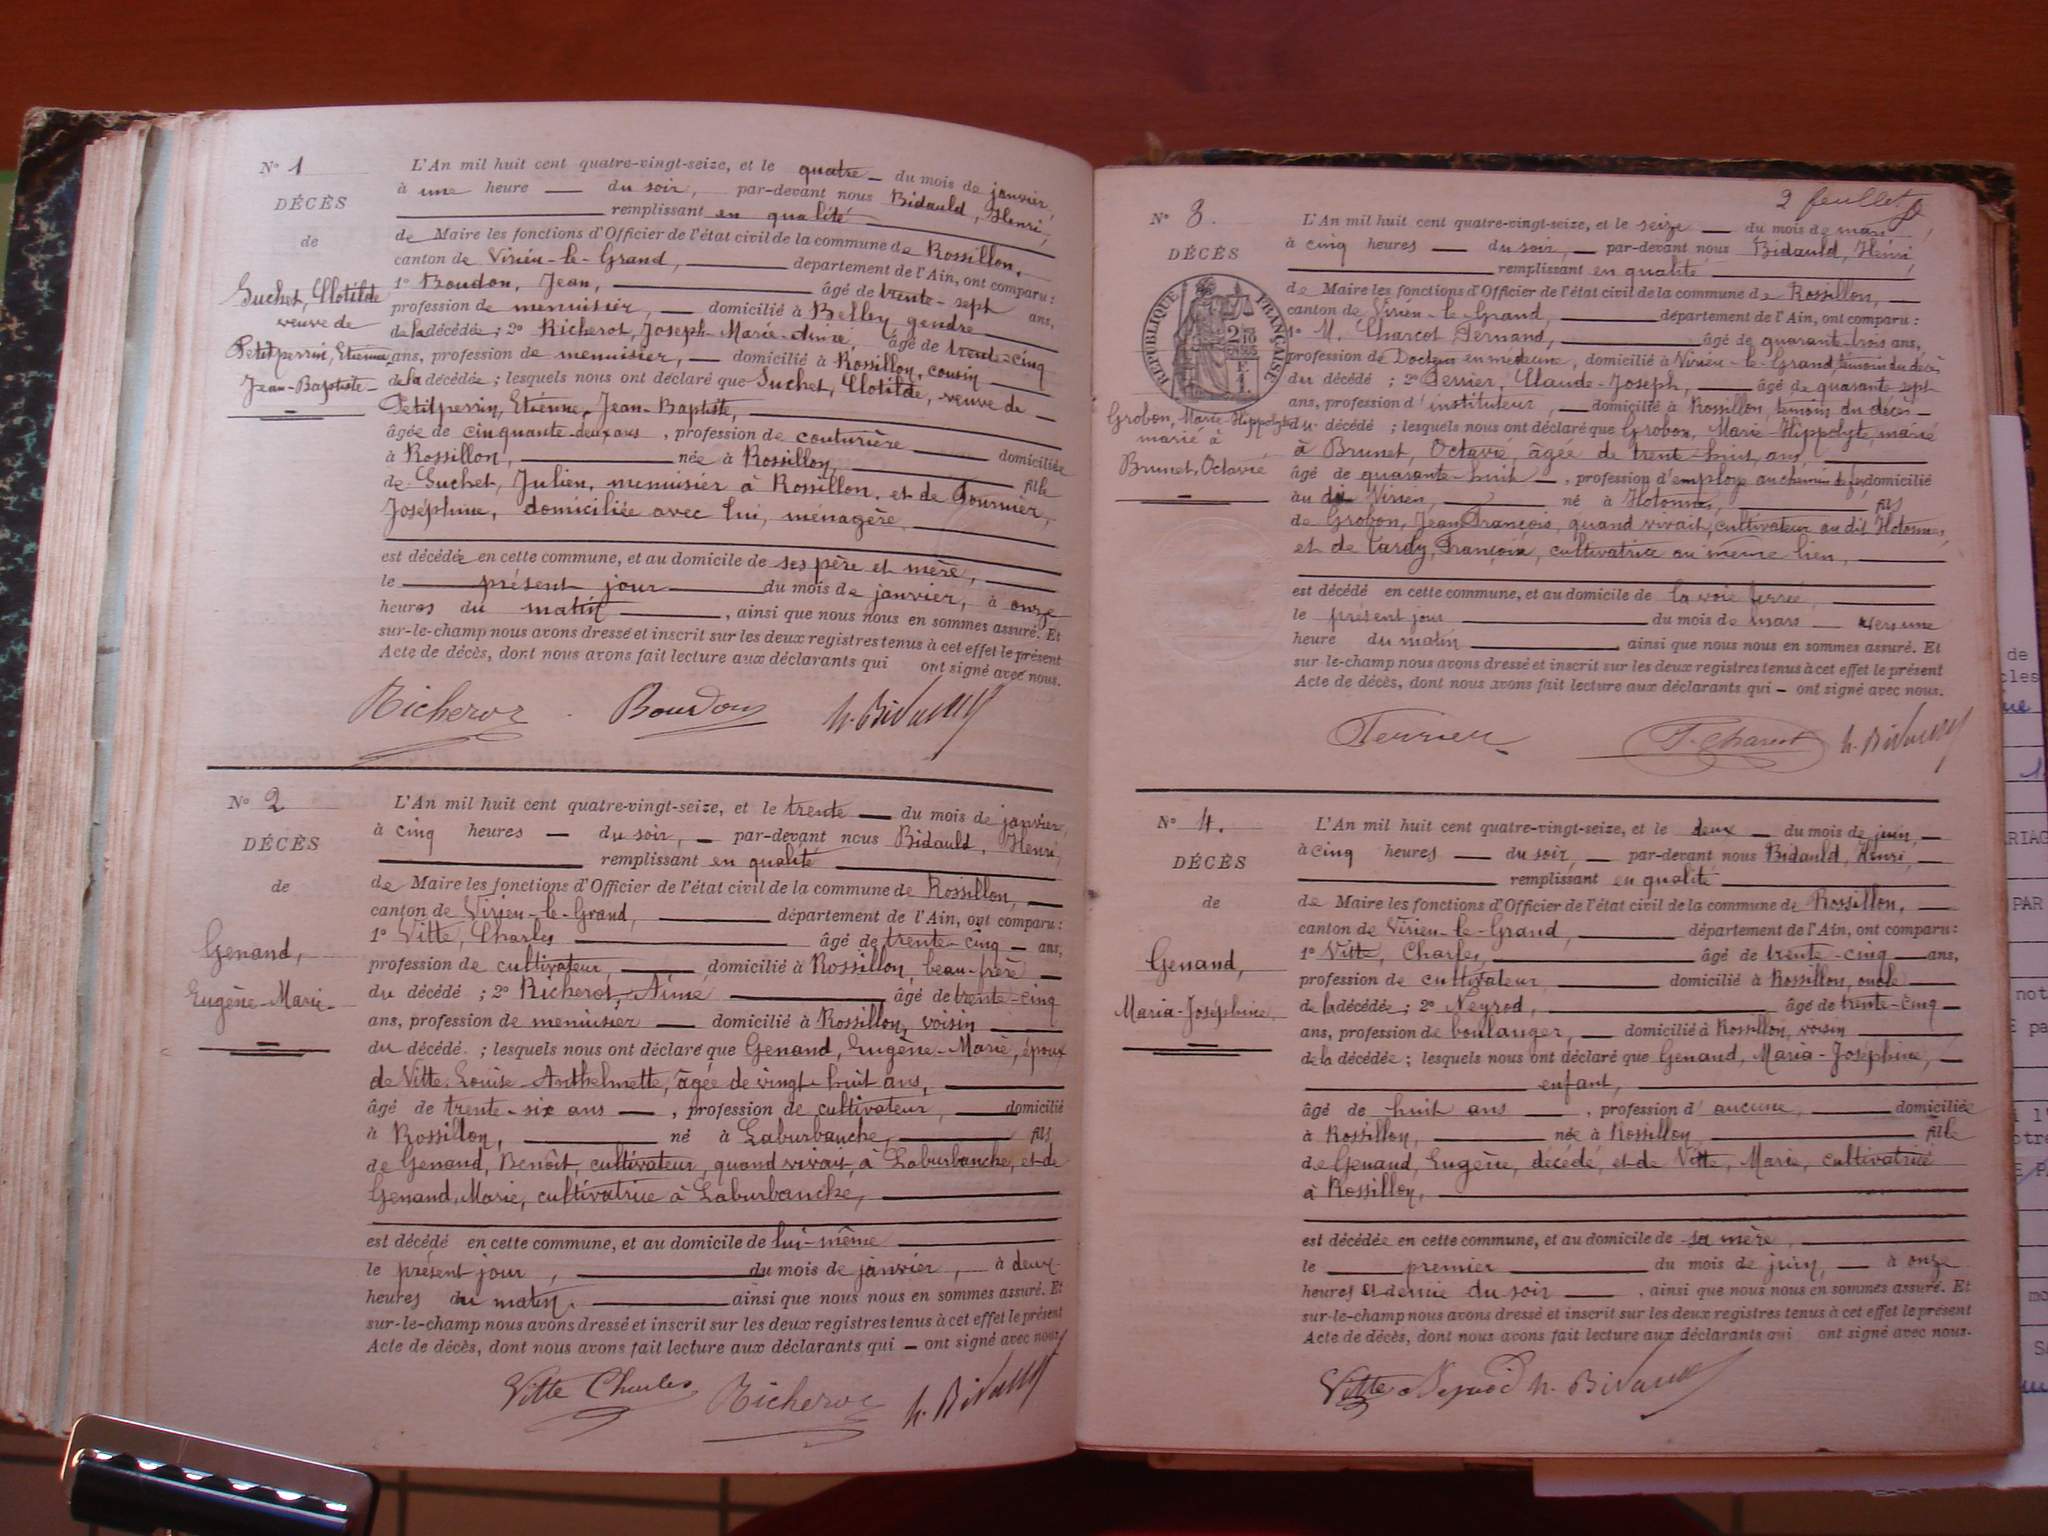 N° 1
DÉCÈS
de
Suchet, Clotilde
veuve de
Petitperrin, Etienne
Jean-Baptiste
L'An mil huit cent quatre-vingt-seize, et le quatre du mois de janvier,
à une heure du soir, par-devant nous Bidauld, Henri,
remplissant en qualité
de Maire les fonctions d'Officier de l'état civil de la commune de Rossillon,
canton de Virieu-le-Grand, département de l'Ain, ont comparu :
1° Boudon, Jean, âgé de trente-sept ans,
profession de menuisier, domicilié à Belley gendre
de la décédée ; 2° Richerot, Joseph-Marie-Aimé, âgé de trente-cinq
ans, profession de menuisier, domicilié à Rossillon, cousin
de la décédée ; lesquels nous ont déclaré que Suchet, Clotilde, veuve de
Petitperrin, Etienne, Jean-Baptiste,
âgée de cinquante-deux ans, profession de couturière domiciliée
à Rossillon, née à Rossillon, fille
de Suchet, Julien, menuisier à Rossillon, et de Fournier,
Joséphine, domiciliée avec lui, ménagère,
est décédée en cette commune, et au domicile de ses père et mère,
le présent jour du mois de janvier, à onze
heures du matin, ainsi que nous nous en sommes assuré. Et
sur-le-champ nous avons dressé et inscrit sur les deux registres tenus à cet effet le présent
Acte de décès, dont nous avons fait lecture aux déclarants qui ont signé avec nous.
Richerot Boudon h. Bidauld
N° 2
DÉCÈS
de
Genand,
Eugène-Marie
L'An mil huit cent quatre-vingt-seize, et le trente du mois de janvier,
à cinq heures du soir, par-devant nous Bidauld, Henri,
remplissant en qualité
de Maire les fonctions d'Officier de l'état civil de la commune de Rossillon,
canton de Virieu-le-Grand, département de l'Ain, ont comparu :
1° Vitte, Charles âgé de trente-cinq ans,
profession de cultivateur, domicilié à Rossillon, beau-frère
du décédé ; 2° Richerot, Aimé âgé de trente-cinq
ans, profession de menuisier domicilié à Rossillon, voisin
du décédé ; lesquels nous ont déclaré que Genand, Eugène-Marie, époux
de Vitte, Louise-Anthelmette, âgée de vingt-huit ans,
âgé de trente-six ans, profession de cultivateur, domicilié
à Rossillon, né à Laburbanche, fils
de Genand, Benoît, cultivateur, quand vivait, à Laburbanche, et de
Genand, Marie, cultivatrice à Laburbanche,
est décédé en cette commune, et au domicile de lui-même
le présent jour, du mois de janvier, à deux
heures du matin, ainsi que nous nous en sommes assuré. Et
sur-le-champ nous avons dressé et inscrit sur les deux registres tenus à cet effet le présent
Acte de décès, dont nous avons fait lecture aux déclarants qui ont signé avec nous.
Vitte Charles Richerot h. Bidauld
2 feuillet
N° 3.
DÉCÈS
RÉPUBLIQUE FRANÇAISE
Grobon, Marie-Hippolyte
marié à
Brunet, Octavie
L'An mil huit cent quatre-vingt-seize, et le seize du mois de mars,
à cinq heures du soir, par-devant nous Bidauld, Henri,
remplissant en qualité
de Maire les fonctions d'Officier de l'état civil de la commune de Rossillon,
canton de Virieu-le-Grand, département de l'Ain, ont comparu :
1° M. Charcot Fernand, âgé de quarante-trois ans,
profession de Docteur en médecine, domicilié à Virieu-le-Grand, témoin du décès
du décédé ; 2° Terrier, Claude-Joseph, âgé de quarante-sept
ans, profession d'instituteur, domicilié à Rossillon, témoin du décès
du décédé ; lesquels nous ont déclaré que Grobon, Marie-Hippolyte, marié
à Brunet, Octavie, âgée de trente-huit ans,
âgé de quarante-huit, profession d'employé au chemin de fer domicilié
au dit Virieu, né à Hotonnes, fils
de Grobon, Jean François, quand vivait, cultivateur au dit Hotonnes,
et de Tardy, Françoise, cultivatrice au même lieu,
est décédé en cette commune, et au domicile de la voie ferrée,
le présent jour du mois de mars vers une
heure du matin ainsi que nous nous en sommes assuré. Et
sur-le-champ nous avons dressé et inscrit sur les deux registres tenus à cet effet le présent
Acte de décès, dont nous avons fait lecture aux déclarants qui ont signé avec nous.
Terrier F. Charcot h. Bidauld
N° 4.
DÉCÈS
de
Genand,
Maria-Joséphine
L'An mil huit cent quatre-vingt-seize, et le deux du mois de juin,
à cinq heures du soir, par-devant nous Bidauld, Henri,
remplissant en qualité
de Maire les fonctions d'Officier de l'état civil de la commune de Rossillon,
canton de Virieu-le-Grand, département de l'Ain, ont comparu :
1° Vitte, Charles, âgé de trente-cinq ans,
profession de cultivateur, domicilié à Rossillon, oncle
de la décédée ; 2° Neyrod, âgé de trente-cinq
ans, profession de boulanger, domicilié à Rossillon, voisin
de la décédée ; lesquels nous ont déclaré que Genand, Maria-Joséphine,
enfant,
âgé de huit ans, profession d'aucune, domiciliée
à Rossillon, née à Rossillon, fille
de Genand, Eugène, décédé, et de Vitte, Marie, cultivatrice
à Rossillon,
est décédée en cette commune, et au domicile de sa mère,
le premier du mois de juin, à onze
heures et demie du soir, ainsi que nous nous en sommes assuré. Et
sur-le-champ nous avons dressé et inscrit sur les deux registres tenus à cet effet le présent
Acte de décès, dont nous avons fait lecture aux déclarants qui ont signé avec nous.
Vitte Neyrod h. Bidauld